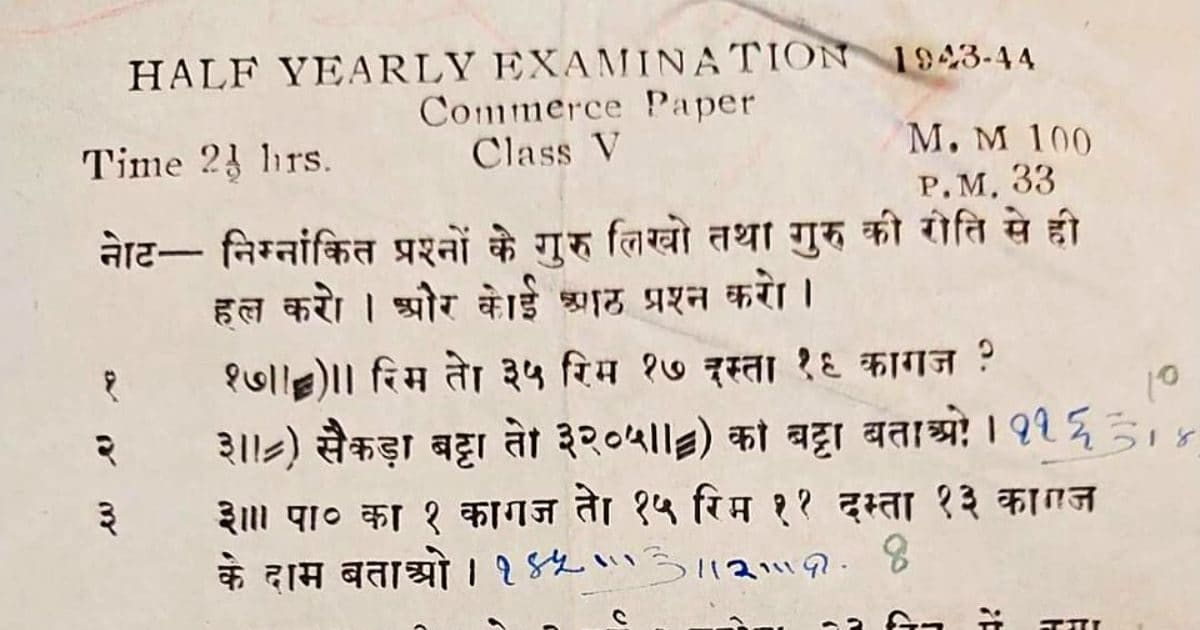 HALF YEARLY EXAMINATION 1943-44
Commerce Paper
Time 2½ hrs. Class V M. M 100
P.M. 33
नोट— निम्नांकित प्रश्नों के गुरु लिखो तथा गुरु की रीति से ही
हल करो । और कोई आठ प्रश्न करो ।
१ १७॥⋹)॥ रिम तो ३५ रिम १७ दस्ता १६ कागज ? 10
२ ३॥=) सैकड़ा बट्टा तो ३२०५॥⋹) का बट्टा बताओ ।
३ ३॥। पा० का १ कागज तो १५ रिम ११ दस्ता १३ कागज
के दाम बताओ । 8